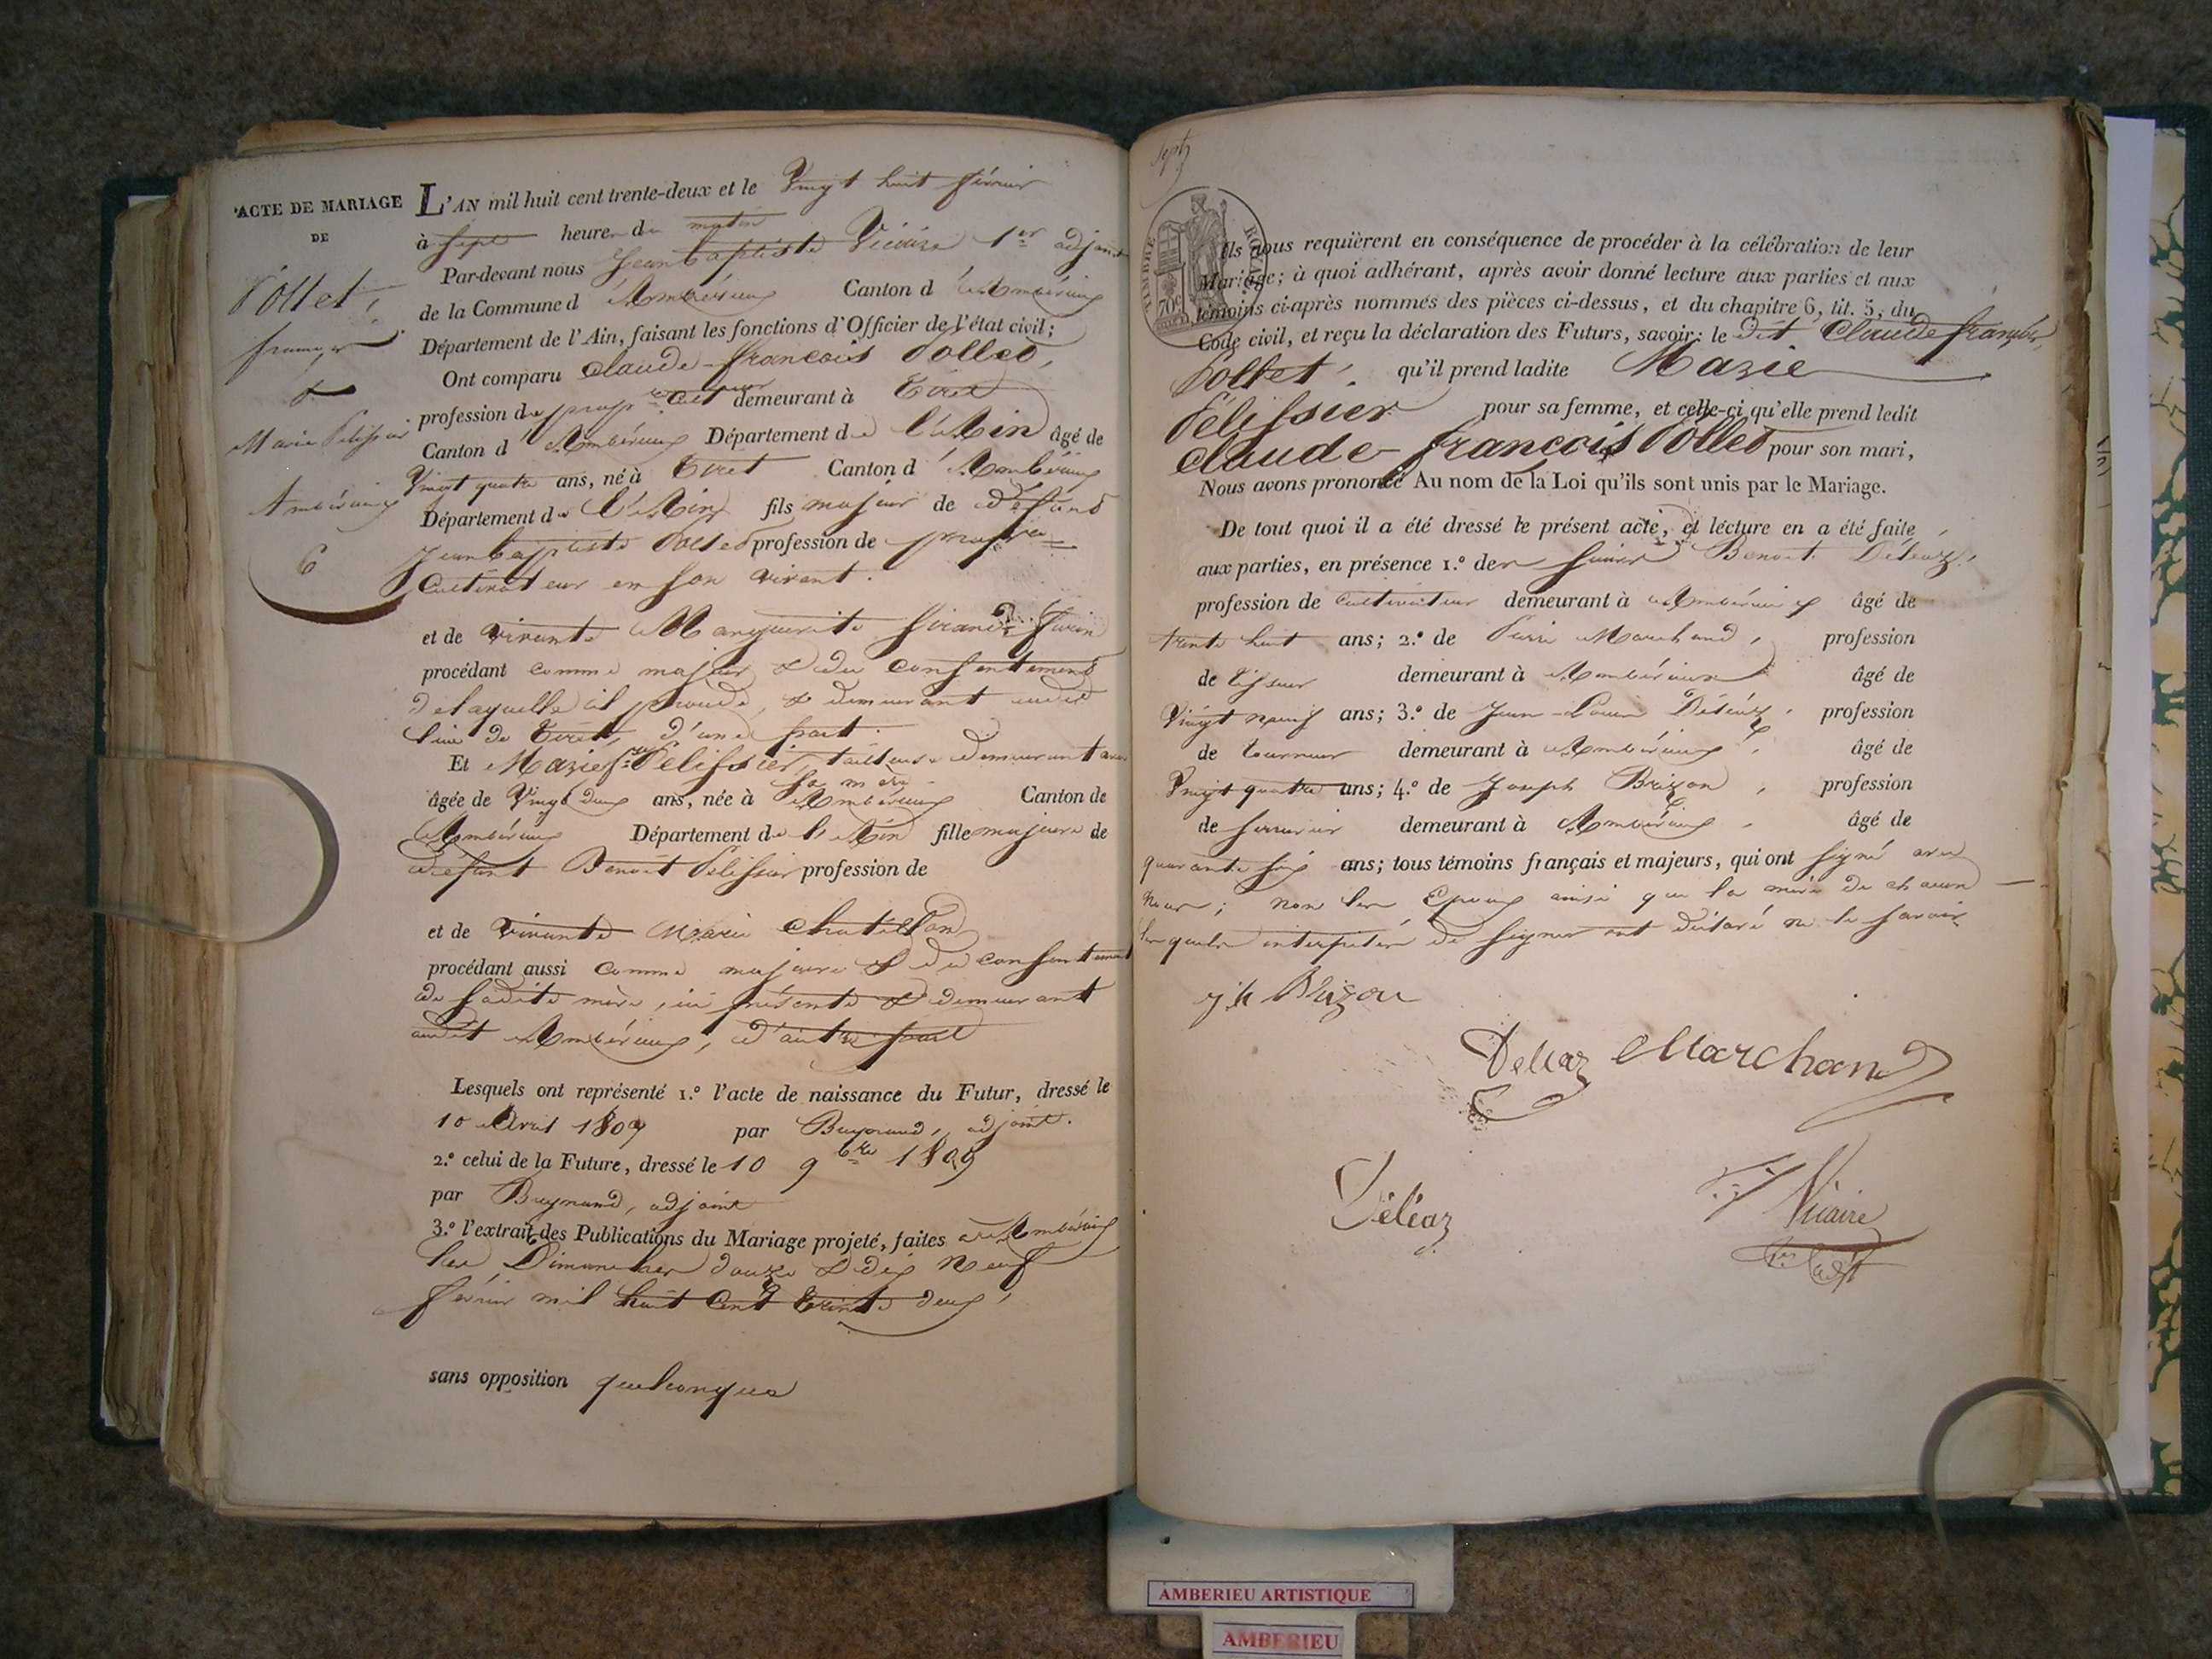 ACTE DE MARIAGE
DE
Pollet,
françois
&
Marie Pelissier
Ambérieux
6
L'AN mil huit cent trente-deux et le Vingt huit février
à sept heures du matin
Par-devant nous Jean Baptiste Vicaire 1er adjoint
de la Commune d'Ambérieux Canton d'Ambérieux
Département de l'Ain, faisant les fonctions d'Officier de l'état civil;
Ont comparu Claude-françois Pollet,
profession de propre cultr demeurant à Tiret
Canton d'Ambérieux Département de l'Ain âgé de
Vingt quatre ans, né à Tiret Canton d'Ambérieux
Département de l'Ain fils majeur de défunt
Jean Baptiste Pollet profession de propre
Cultivateur en son vivant.
et de vivante Marguerite
procédant comme majeur & du consentement
de laquelle il procède, & demeurant audit
lieu de Tiret, d'une part.
Et Marie Pelissier, tailleuse demeurant avec
sa mère
âgée de Vingt deux ans, née à Ambérieux Canton de
Ambérieux Département de l'Ain fille majeure de
défunt Benoit Pelissier profession de
et de vivante Marie Chatillon
procédant aussi comme majeure & du consentement
de sadite mère, ici présente & demeurant
audit Ambérieux, d'autre part
Lesquels ont représenté 1.º l'acte de naissance du Futur, dressé le
10 Avril 1807 par adjoint.
2.º celui de la Future, dressé le 10 9bre 1809
par adjoint
3.º l'extrait des Publications du Mariage projeté, faites à Ambérieux
les Dimanches douze & dix neuf
février mil huit Cent trente deux,
sans opposition quelconque
Sept
TIMBRE ROYAL
70c
Ils nous requièrent en conséquence de procéder à la célébration de leur
Mariage; à quoi adhérant, après avoir donné lecture aux parties et aux
témoins ci-après nommés des pièces ci-dessus, et du chapitre 6, tit. 5, du
Code civil, et reçu la déclaration des Futurs, savoir: le dit Claude françois
Pollet, qu'il prend ladite Marie
Pélissier pour sa femme, et celle-ci qu'elle prend ledit
Claude-françois Pollet pour son mari,
Nous avons prononcé Au nom de la Loi qu'ils sont unis par le Mariage.
De tout quoi il a été dressé le présent acte, et lecture en a été faite
aux parties, en présence 1.º des sieurs Benoit Déléaz,
profession de cultivateur demeurant à Ambérieux âgé de
trente huit ans; 2.º de Pierre Marchand, profession
de tisseur demeurant à Ambérieux âgé de
Vingt neuf ans; 3.º de Jean-Louis Déléaz, profession
de tourneur demeurant à Ambérieux, âgé de
Vingt quatre ans; 4.º de Joseph Brizon, profession
de serrurier demeurant à Ambérieux, âgé de
quarante six ans; tous témoins français et majeurs, qui ont signé avec
nous; non les Epoux ainsi que la mère de chacun
lesquels interpelés de signer ont déclaré ne le savoir
jh Brizon
Deleaz Marchand
Déléaz
Vicaire
1er adjt
AMBERIEU ARTISTIQUE
AMBERIEU